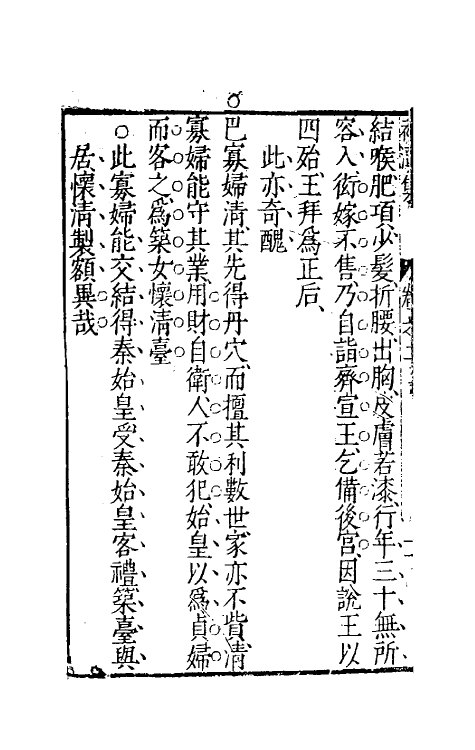 結喉肥項少髮折腰出胸皮膚若漆行年三十無所
容入衒嫁不售乃自詣齊宣王乞備後宮因說王以
四殆王拜爲正后
此亦奇醜
巴寡婦清其先得丹穴而擅其利數世家亦不貲清
寡婦能守其業用財自衛人不敢犯始皇以爲貞婦
而客之爲築女懷清臺
○此寡婦能交結得秦始皇受秦始皇客禮築臺與
居懷清製額異哉